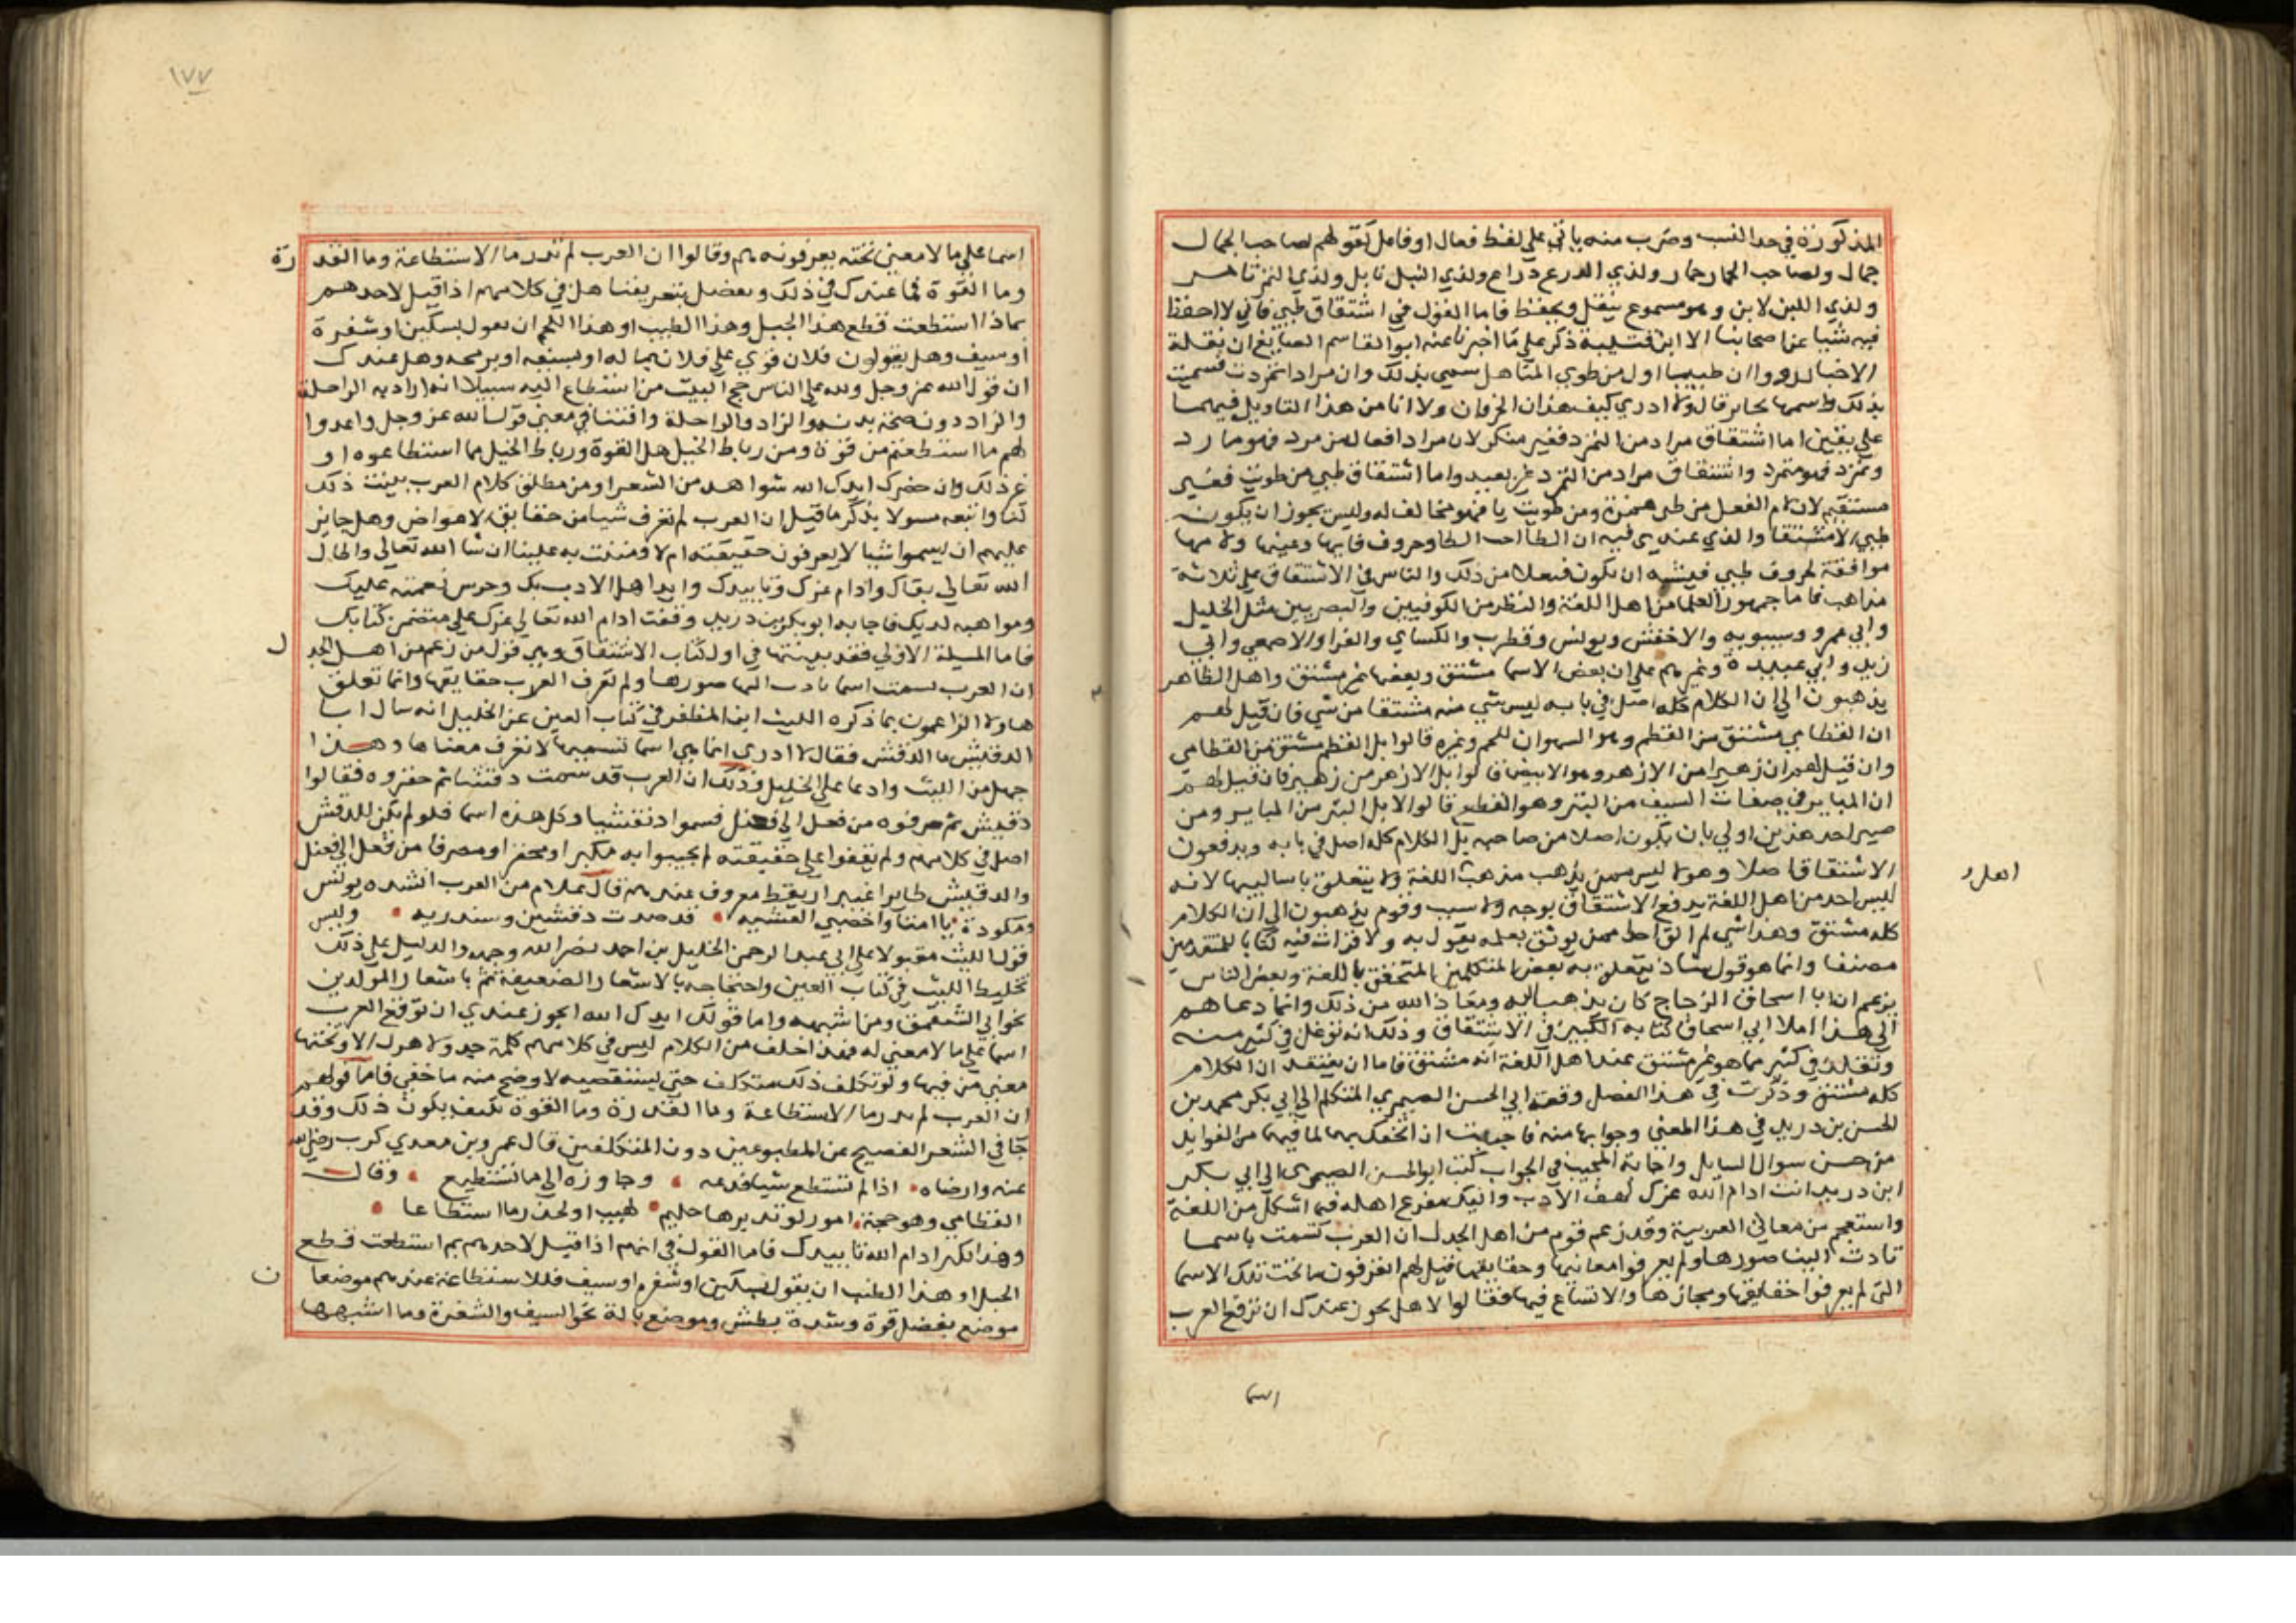 المذكورة في حد النسب وضرب منه ياتي علي لفظ فعال او فاعل كقولهم لصاحب الجمال
جمال ولصاحب الحمار حمار ولذي الدرع دراع ولذي النبل نابل ولذي التمر تامر
ولذي اللبن لابن وهو مسموع ينقل ويحفظ فاما القول في اشتقاق طيي فاني لا احفظ
فيه شيا عن اصحابنا الا ابن قتيبة ذكر علي ما اخبرنا عنه ابو القاسم الصايغ ان نقلة
الاخبار رووا ان طييا اول من طوي المناهل سمي بذلك وان مرادا تمردت فسميت
بذلك واسمها يحابر قال ولا ادري كيف هذان الحرفان ولا انا من هذا التاويل فيهما
علي يقين اما اشتقاق مراد من التمرد فغير منكر لان مرادا فعال من مرد فهو مارد
وتمرد فهو متمرد واشتقاق مراد من التمرد غير بعيد واما اشتقاق طيي من طويت فغير
مستقيم لان لام الفعل من طيي همزة ومن طويت يا فهو مخالف له وليس يجوز ان يكون
طيي الا مشتقا والذي عندي فيه ان الطاة احد الطا وحروف فايها وعينها ولامها
موافقة لحروف طيي فيشبه ان يكون فيعلا من ذلك والناس في الاشتقاق علي ثلاثة
مذاهب فاما جمهور العلما من اهل اللغة والنظر من الكوفيين والبصريين مثل الخليل
وابي عمرو وسيبويه والاخفش ويونس وقطرب والكساي والفرا والاصمعي وابي
زيد وابي عبيدة وغيرهم علي ان بعض الاسما مشتق وبعضها غير مشتق واهل الظاهر
يذهبون الي ان الكلام كله اصل في بابه ليس شي منه مشتقا من شي فان قيل لهم
ان القطامي مشتق من القطم وهو الشهوان للحم وغيره قالوا بل القطم مشتق من القطامي
وان قيل لهم ان زهيرا من الازهر وهو الابيض قالوا بل الازهر من زهير فان قيل لهم
ان المباير في صفات السيف من البتر وهو القطع قالوا لا بل البتر من المباير ومن
صير احد هذين اولي بان يكون اصلا من صاحبه بل الكلام كله اصل في بابه ويدفعون
الاشتقاق اصلا وهولا ليس ممن يذهب مذهب اللغة ولا يتعلق باساليبها لانه
ليس احد من اهل اللغة يدفع الاشتقاق بوجه ولا سبب وقوم يذهبون الي ان الكلام
كله مشتق وهذا شي لم ار احدا ممن يوثق بعلمه يقول به ولا قرات فيه كتابا للمتقدمين
مصنفا وانما هو قول شاذ يتعلق به بعض المتكلمين المتحققين باللغة وبعض الناس
يزعم ان ابا اسحاق الزجاج كان يذهب اليه ومعاذ الله من ذلك وانما دعاهم
الي هذا املا ابي اسحاق كتابه الكبير في الاشتقاق وذلك انه توغل في كثير منه
وتقلد في كثير مما هو غير مشتق عند اهل اللغة انه مشتق فاما ان يعتقد ان الكلام
كله مشتق وذكرت في هذا الفصل رقعة ابي الحسن الصيمري المتكلم الي ابي بكر محمد بن
الحسن بن دريد في هذا المعني وجوابها منه فاحببت ان اتحفك بهما لما فيهما من الفوايد
من حسن سوال السايل واجابة المجيب في الجواب كتب ابو الحسن الصيمري الي ابي بكر
ابن دريد انت ادام الله عزك كهف الادب واليك مفزع اهله فيما اشكل من اللغة
واستعجم من معاني العربية وقد زعم قوم من اهل الجدل ان العرب تسمت باسما
تادت الينا صورها ولم يعرفوا معانيها وحقايقها فقيل لهم ايعرفون ما تحت تلك الاسما
التي لم يعرفوا حقايقها ومجازها والاتساع فيها فقالوا لا هل يجوز عندك ان توقع العرب
اسما
اسما علي ما لا معني تحته يعرفونه هم وقالوا ان العرب لم تدر ما الاستطاعة وما القدرة
وما القوة فما عندك في ذلك وتفضل بتعريفنا هل في كلامهم اذا قيل لاحدهم
بماذا استطعت قطع هذا الحبل وهذا الطنب او هذا اللحم ان يقول بسكين او شفرة
او سيف وهل يقولون فلان قوي علي فلان بماله او بسيفه او برمحه وهل عندك
ان قول الله عز وجل ولله علي الناس حج البيت من استطاع اليه سبيلا انه اراد به الراحلة
والزاد دون صحة بدنه والزاد والراحلة وافتنا في معني قول الله عز وجل واعدوا
لهم ما استطعتم من قوة ومن رباط الخيل هل القوة ورباط الخيل مما استطاعوه او
غير ذلك وان حضرك ايدك الله شواهد من الشعر او من مطلق كلام العرب بينت ذلك
لنا واتبعه مسولا بذكر ما قيل ان العرب لم تعرف شيا من حقايق الاعراض وهل جايز
عليهم ان يسموا شيا لا يعرفون حقيقته ام لا ومننت به علينا ان شا الله تعالي واطال
الله تعالي بقاك وادام عزك وتاييدك وايد اهل الادب بك وحرس نعمته عليك
ومواهبه لديك فاجابه ابو بكر بن دريد وقفت ادام الله تعالي عزك علي متضمن كتابك
فاما المسيلة الاولي فقد بينتها في اول كتاب الاشتقاق وهي قول من زعم من اهل الجدل
ان العرب تسمت اسما تادت الينا صورها ولم تعرف العرب حقايقها وانما تعلق
هاولا الزاعمون بما ذكره الليث ابن المظفر في كتاب العين عن الخليل انه سال ابا
الدقيش ما الدقش فقال لا ادري انما هي اسما نسميها لا نعرف معناها وهذا
جهل من الليث وادعا علي الخليل وذلك ان العرب قد سمت دقشا ثم حقروه فقالوا
دقيش ثم صرفوه من فعل الي فنعل فسموا دنقشا وكل هذه اسما فلو لم يكن للدقش
اصل في كلامهم ولم يقفوا علي حقيقته لم يجيبوا به مكبرا ومحقرا ومصرفا من فعل الي فنعل
والدقيش طاير اغيبر اريقط معروف عندهم قال غلام من العرب انشده يونس
ومكوذة يا امتا واخصبي العشيه • قد صدت دقشين وسندريه • وليس
قول الليث مقبولا علي ابي عبد الرحمن الخليل بن احمد نضر الله وجهه والدليل علي ذلك
تخليط الليث في كتاب العين واحتجاجه بالاشعار الضعيفة ثم باشعار المولدين
نحو ابي الشمقمق ومن اشبهه واما قولك ايدك الله ايجوز عندي ان توقع العرب
اسما علي ما لا معني له فهذا خلف من الكلام ليس في كلامهم كلمة جد ولا هزل الا وتحتها
معني من فيها ولو تكلف ذلك متكلف حتي يستقصيه لاوضح منه ما خفي فاما قولهم
ان العرب لم تدر ما الاستطاعة وما القدرة وما القوة فكيف يكون ذلك وقد
جا في الشعر الفصيح عن المطبوعين دون المتكلفين قال عمرو بن معدي كرب رضي الله
عنه وارضاه • اذا لم تستطع شيا فدعه • وجاوزه الي ما تستطيع • وقال
القطامي وهو حجة • امور لو تدبرها حليم • لهيب او لحذر ما استطاعا •
وهذا كثير ادام الله تاييدك فاما القول في انهم اذا قيل لاحدهم بم استطعت قطع
الحبل او هذا الطنب ان يقول بسكين او شفرة او سيف فللاستطاعة عندهم موضعان
موضع بفضل قوة وشدة بطش وموضع بالة نحو السيف والشفرة وما اشبهها
١٧٧